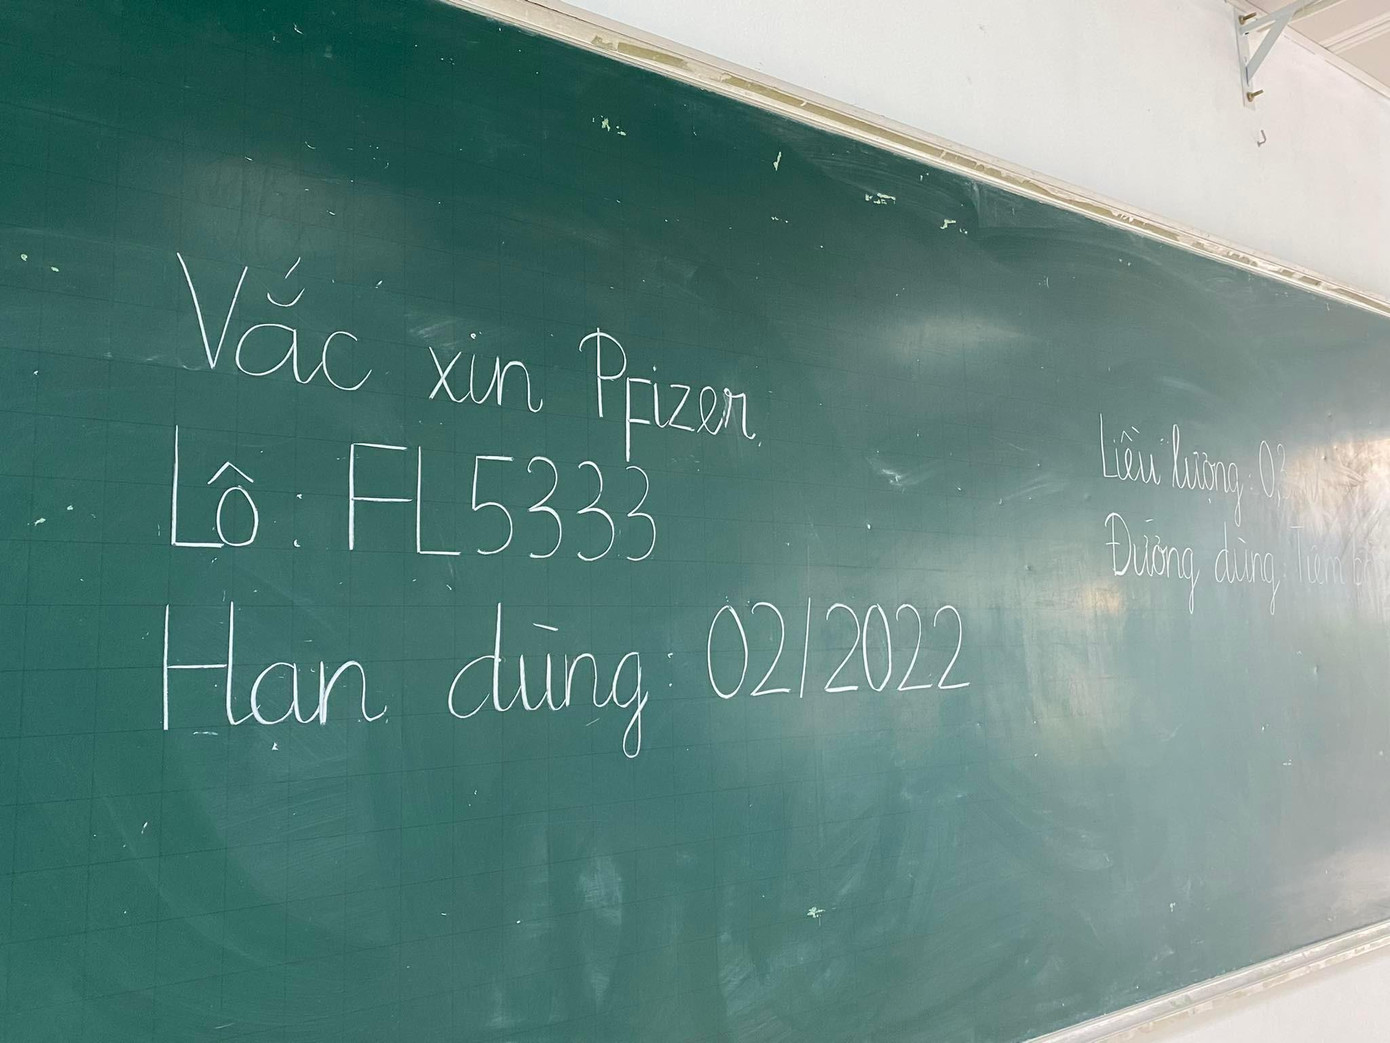 Vắc xin Pfizer
Lô: FL5333
Hạn dùng: 02/2022
Liều lượng: 0,3
Đường dùng: Tiêm